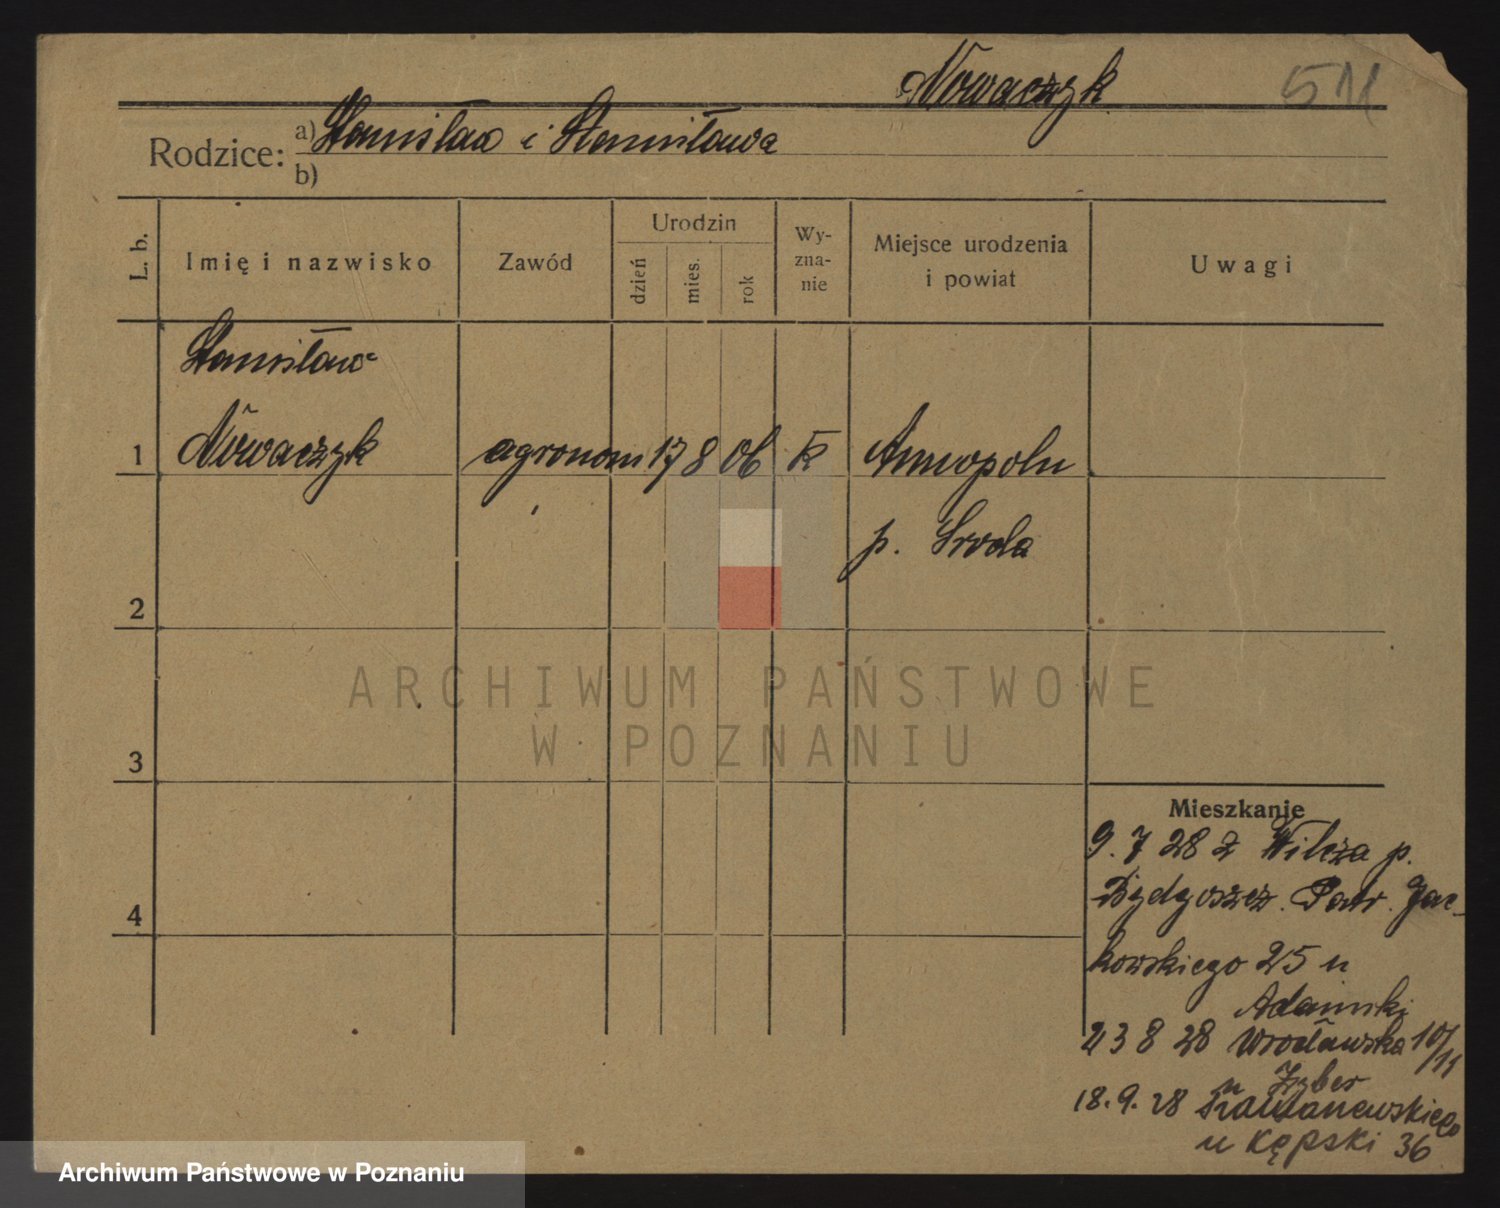 Nowaczyk 511
Rodzice: a) Stanisław i Stanisława
b)
L. b. Imię i nazwisko Zawód Urodzin dzień mies. rok Wy-zna-nie Miejsce urodzenia i powiat Uwagi
Stanisław
1 Nowaczyk agronom 17 8 06 k Annopolu
p. Sroda
2
ARCHIWUM PAŃSTWOWE
W POZNANIU
3
Mieszkanie
9. 7 28 z Wilcza p.
4 Bydgoszcz. Patr. Jac-
kowskiego 25 u
Adamski
23 8 28 Wrocławska 10/11
u Zyber
18. 9. 28
u Kępski 36
Archiwum Państwowe w Poznaniu